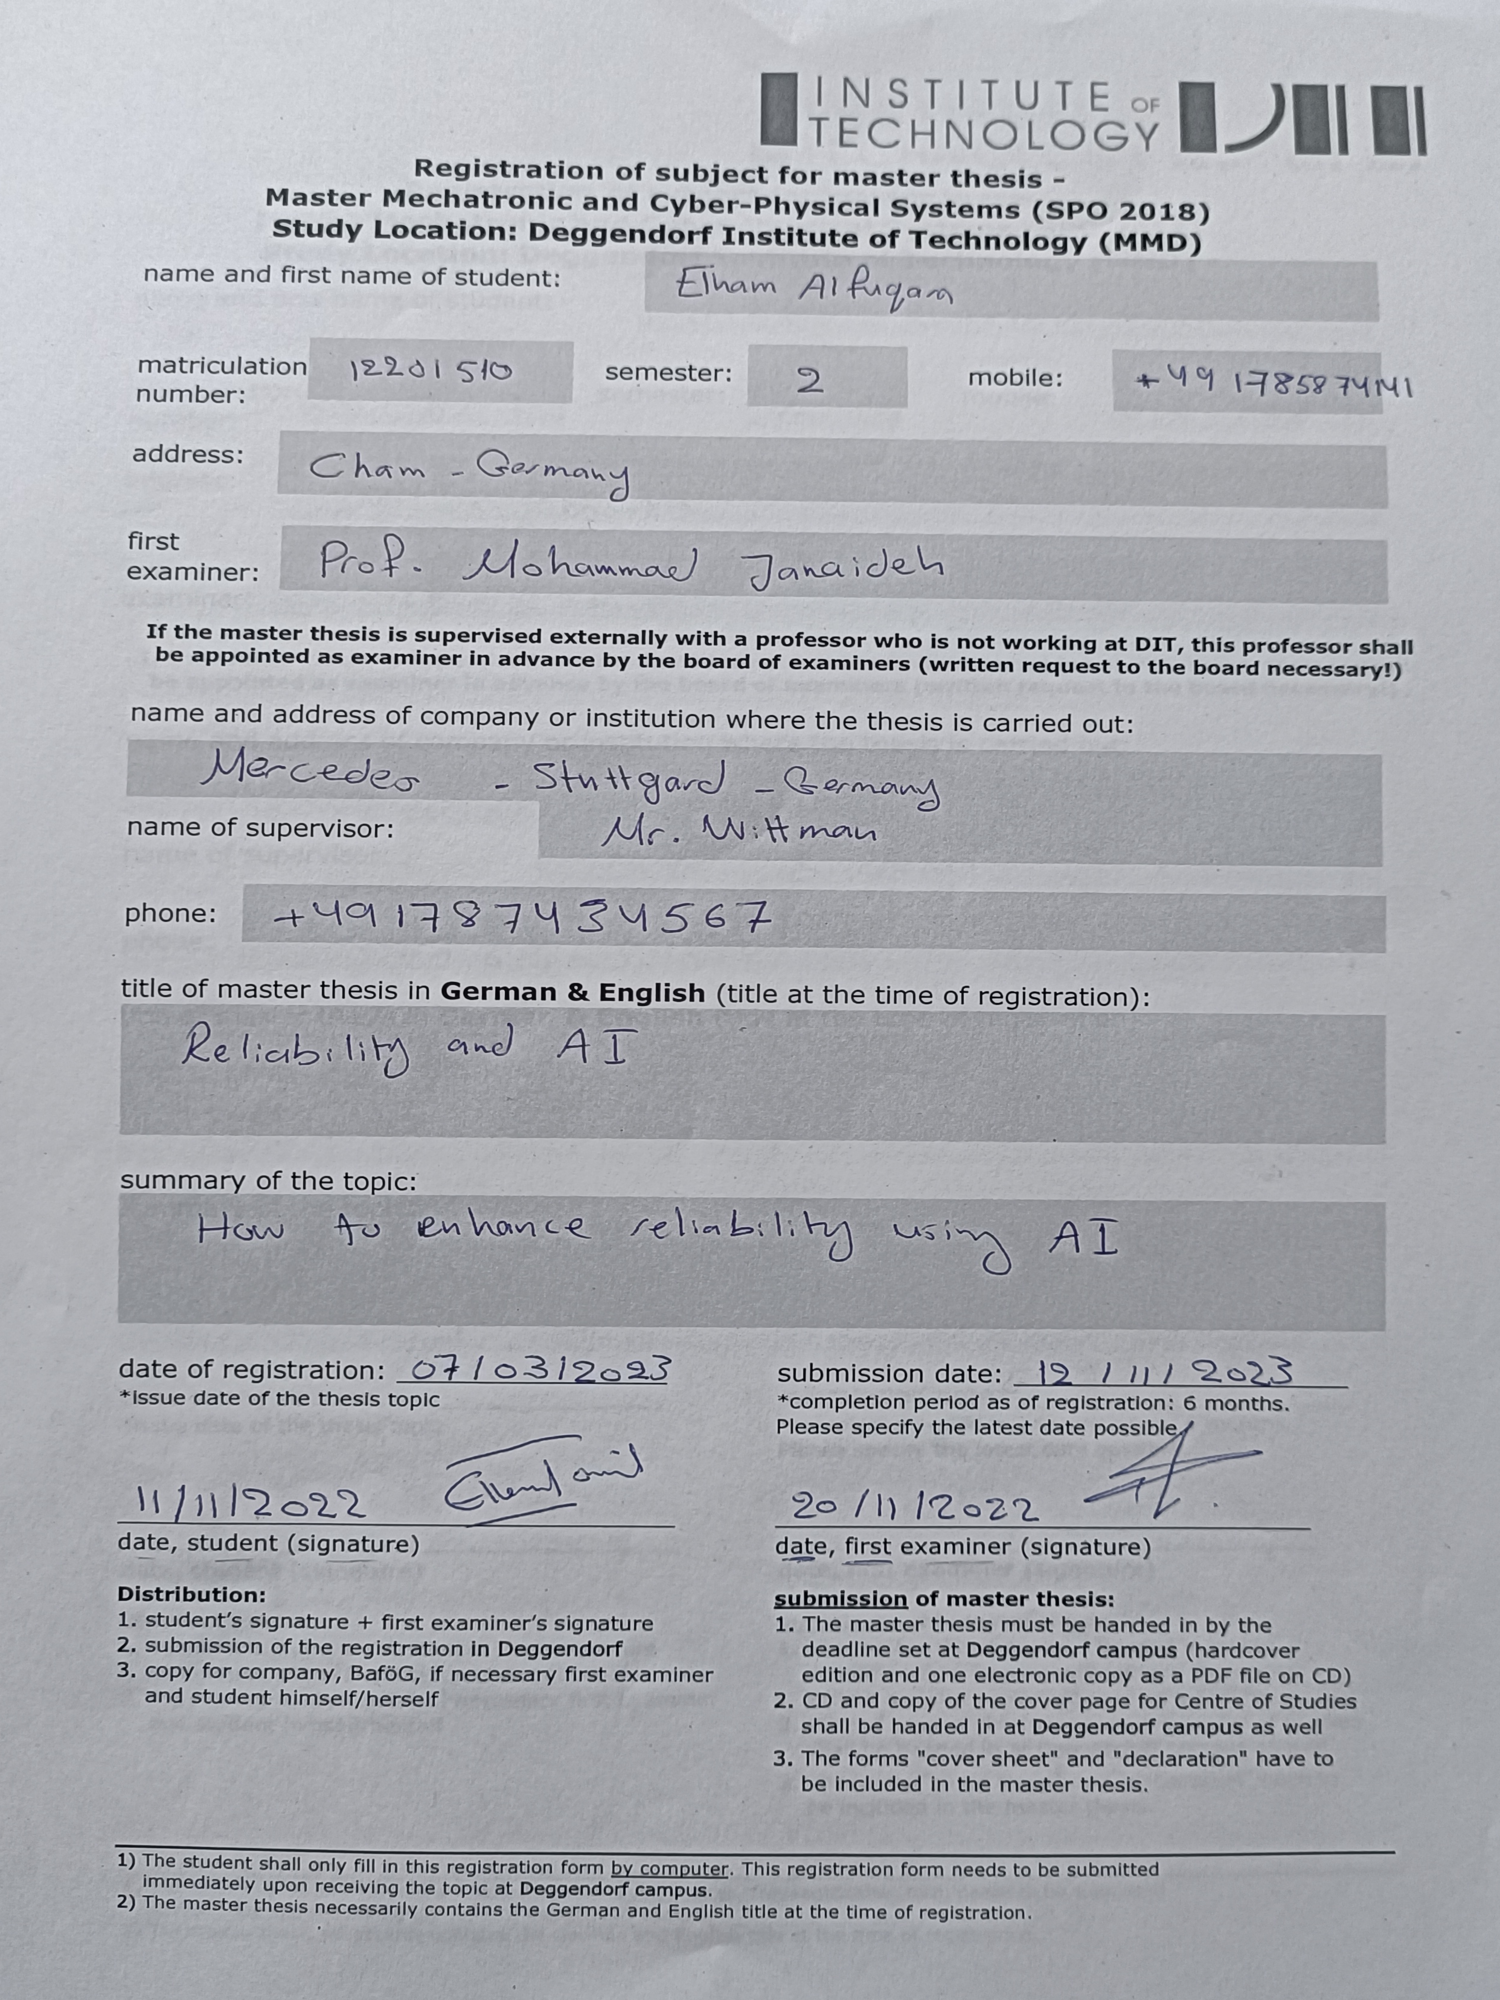 INSTITUTE OF
TECHNOLOGY
Registration of subject for master thesis -
Master Mechatronic and Cyber-Physical Systems (SPO 2018)
Study Location: Deggendorf Institute of Technology (MMD)
name and first name of student: Elham Alfuqara
matriculation number: 12201510 semester: 2 mobile: +49 1785874141
address: Cham - Germany
first examiner: Prof. Mohammad Janaideh
If the master thesis is supervised externally with a professor who is not working at DIT, this professor shall
be appointed as examiner in advance by the board of examiners (written request to the board necessary!)
name and address of company or institution where the thesis is carried out:
Mercedes - Stuttgard - Germany
name of supervisor: Mr. Wittman
phone: +491787434567
title of master thesis in German & English (title at the time of registration):
Reliability and AI
summary of the topic:
How to enhance reliability using AI
date of registration: 07/03/2023
*issue date of the thesis topic
submission date: 12/11/2023
*completion period as of registration: 6 months.
Please specify the latest date possible
11/11/2022
date, student (signature)
20/11/2022
date, first examiner (signature)
Distribution:
1. student's signature + first examiner's signature
2. submission of the registration in Deggendorf
3. copy for company, BaföG, if necessary first examiner
and student himself/herself
submission of master thesis:
1. The master thesis must be handed in by the
deadline set at Deggendorf campus (hardcover
edition and one electronic copy as a PDF file on CD)
2. CD and copy of the cover page for Centre of Studies
shall be handed in at Deggendorf campus as well
3. The forms "cover sheet" and "declaration" have to
be included in the master thesis.
1) The student shall only fill in this registration form by computer. This registration form needs to be submitted
immediately upon receiving the topic at Deggendorf campus.
2) The master thesis necessarily contains the German and English title at the time of registration.